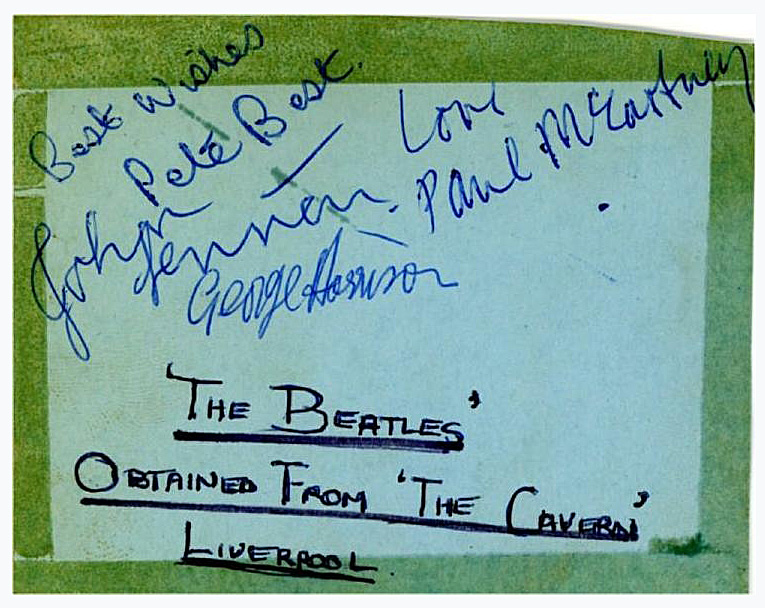 Best Wishes
Pete Best.
Love
Paul McCartney
John Lennon.
George Harrison
'THE BEATLES'
OBTAINED FROM 'THE CAVERN'
LIVERPOOL.